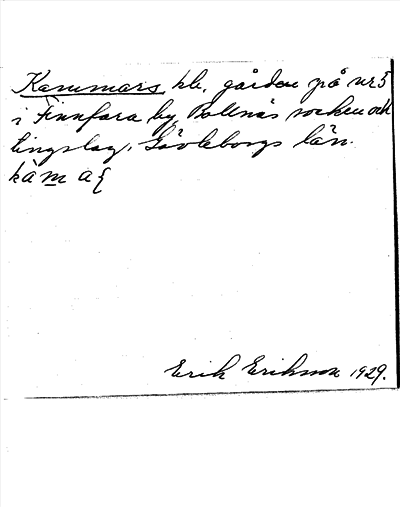 Kammars hb. gården på nr 5
i Finnfara by, Bollnäs socken och
tingslag, Gävleborgs län.
kàm a
Erik Eriksson 1929.